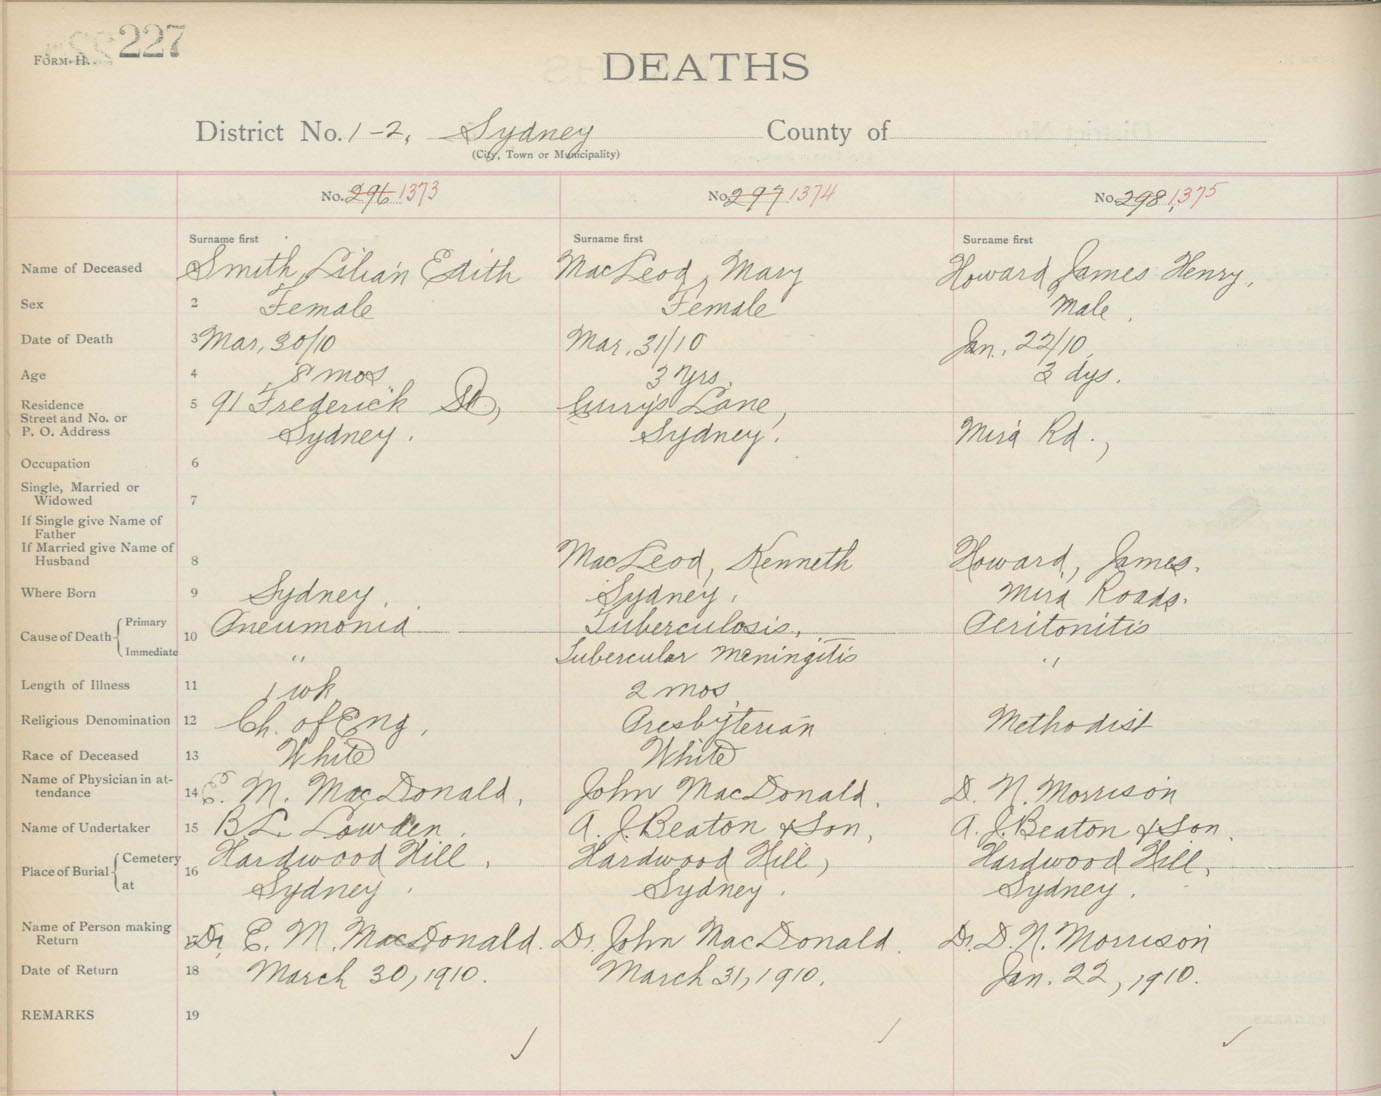 227
FORM H.
DEATHS
District No. 1-2, Sydney County of
(City, Town or Municipality)
No. 296 1373 No. 297 1374 No. 298 1375
Surname first Surname first Surname first
Name of Deceased Smith, Lilian Edith MacLeod, Mary Howard James Henry,
Sex 2 Female Female Male
Date of Death 3 Mar, 30/10 Mar, 31/10 Jan, 22/10
Age 4 8 mos 3 yrs, 3 dys.
Residence 5 91 Frederick St, Curry's Lane,
Street and No. or
P. O. Address Sydney. Sydney. Mira Rd.,
Occupation 6
Single, Married or
Widowed 7
If Single give Name of
Father
If Married give Name of
Husband 8 MacLeod, Kenneth Howard, James.
Where Born 9 Sydney, Sydney, Mira Roads.
Cause of Death Primary 10 Pneumonia Tuberculosis, Peritonitis
Immediate " Tubercular Meningitis "
Length of Illness 11 1 wk 2 mos
Religious Denomination 12 Ch. of Eng, Presbyterian Methodist
Race of Deceased 13 White White
Name of Physician in at-
tendance 14 E. M. MacDonald, John MacDonald, D. N. Morrison
Name of Undertaker 15 B L. Lowden. A. J. Beaton & Son, A. J. Beaton & Son.
Place of Burial Cemetery 16 Hardwood Hill, Hardwood Hill, Hardwood Hill,
at Sydney. Sydney. Sydney.
Name of Person making
Return 17 Dr. E. M. MacDonald. Dr. John MacDonald. Dr. D. N. Morrison
Date of Return 18 March 30, 1910. March 31, 1910. Jan. 22, 1910.
REMARKS 19